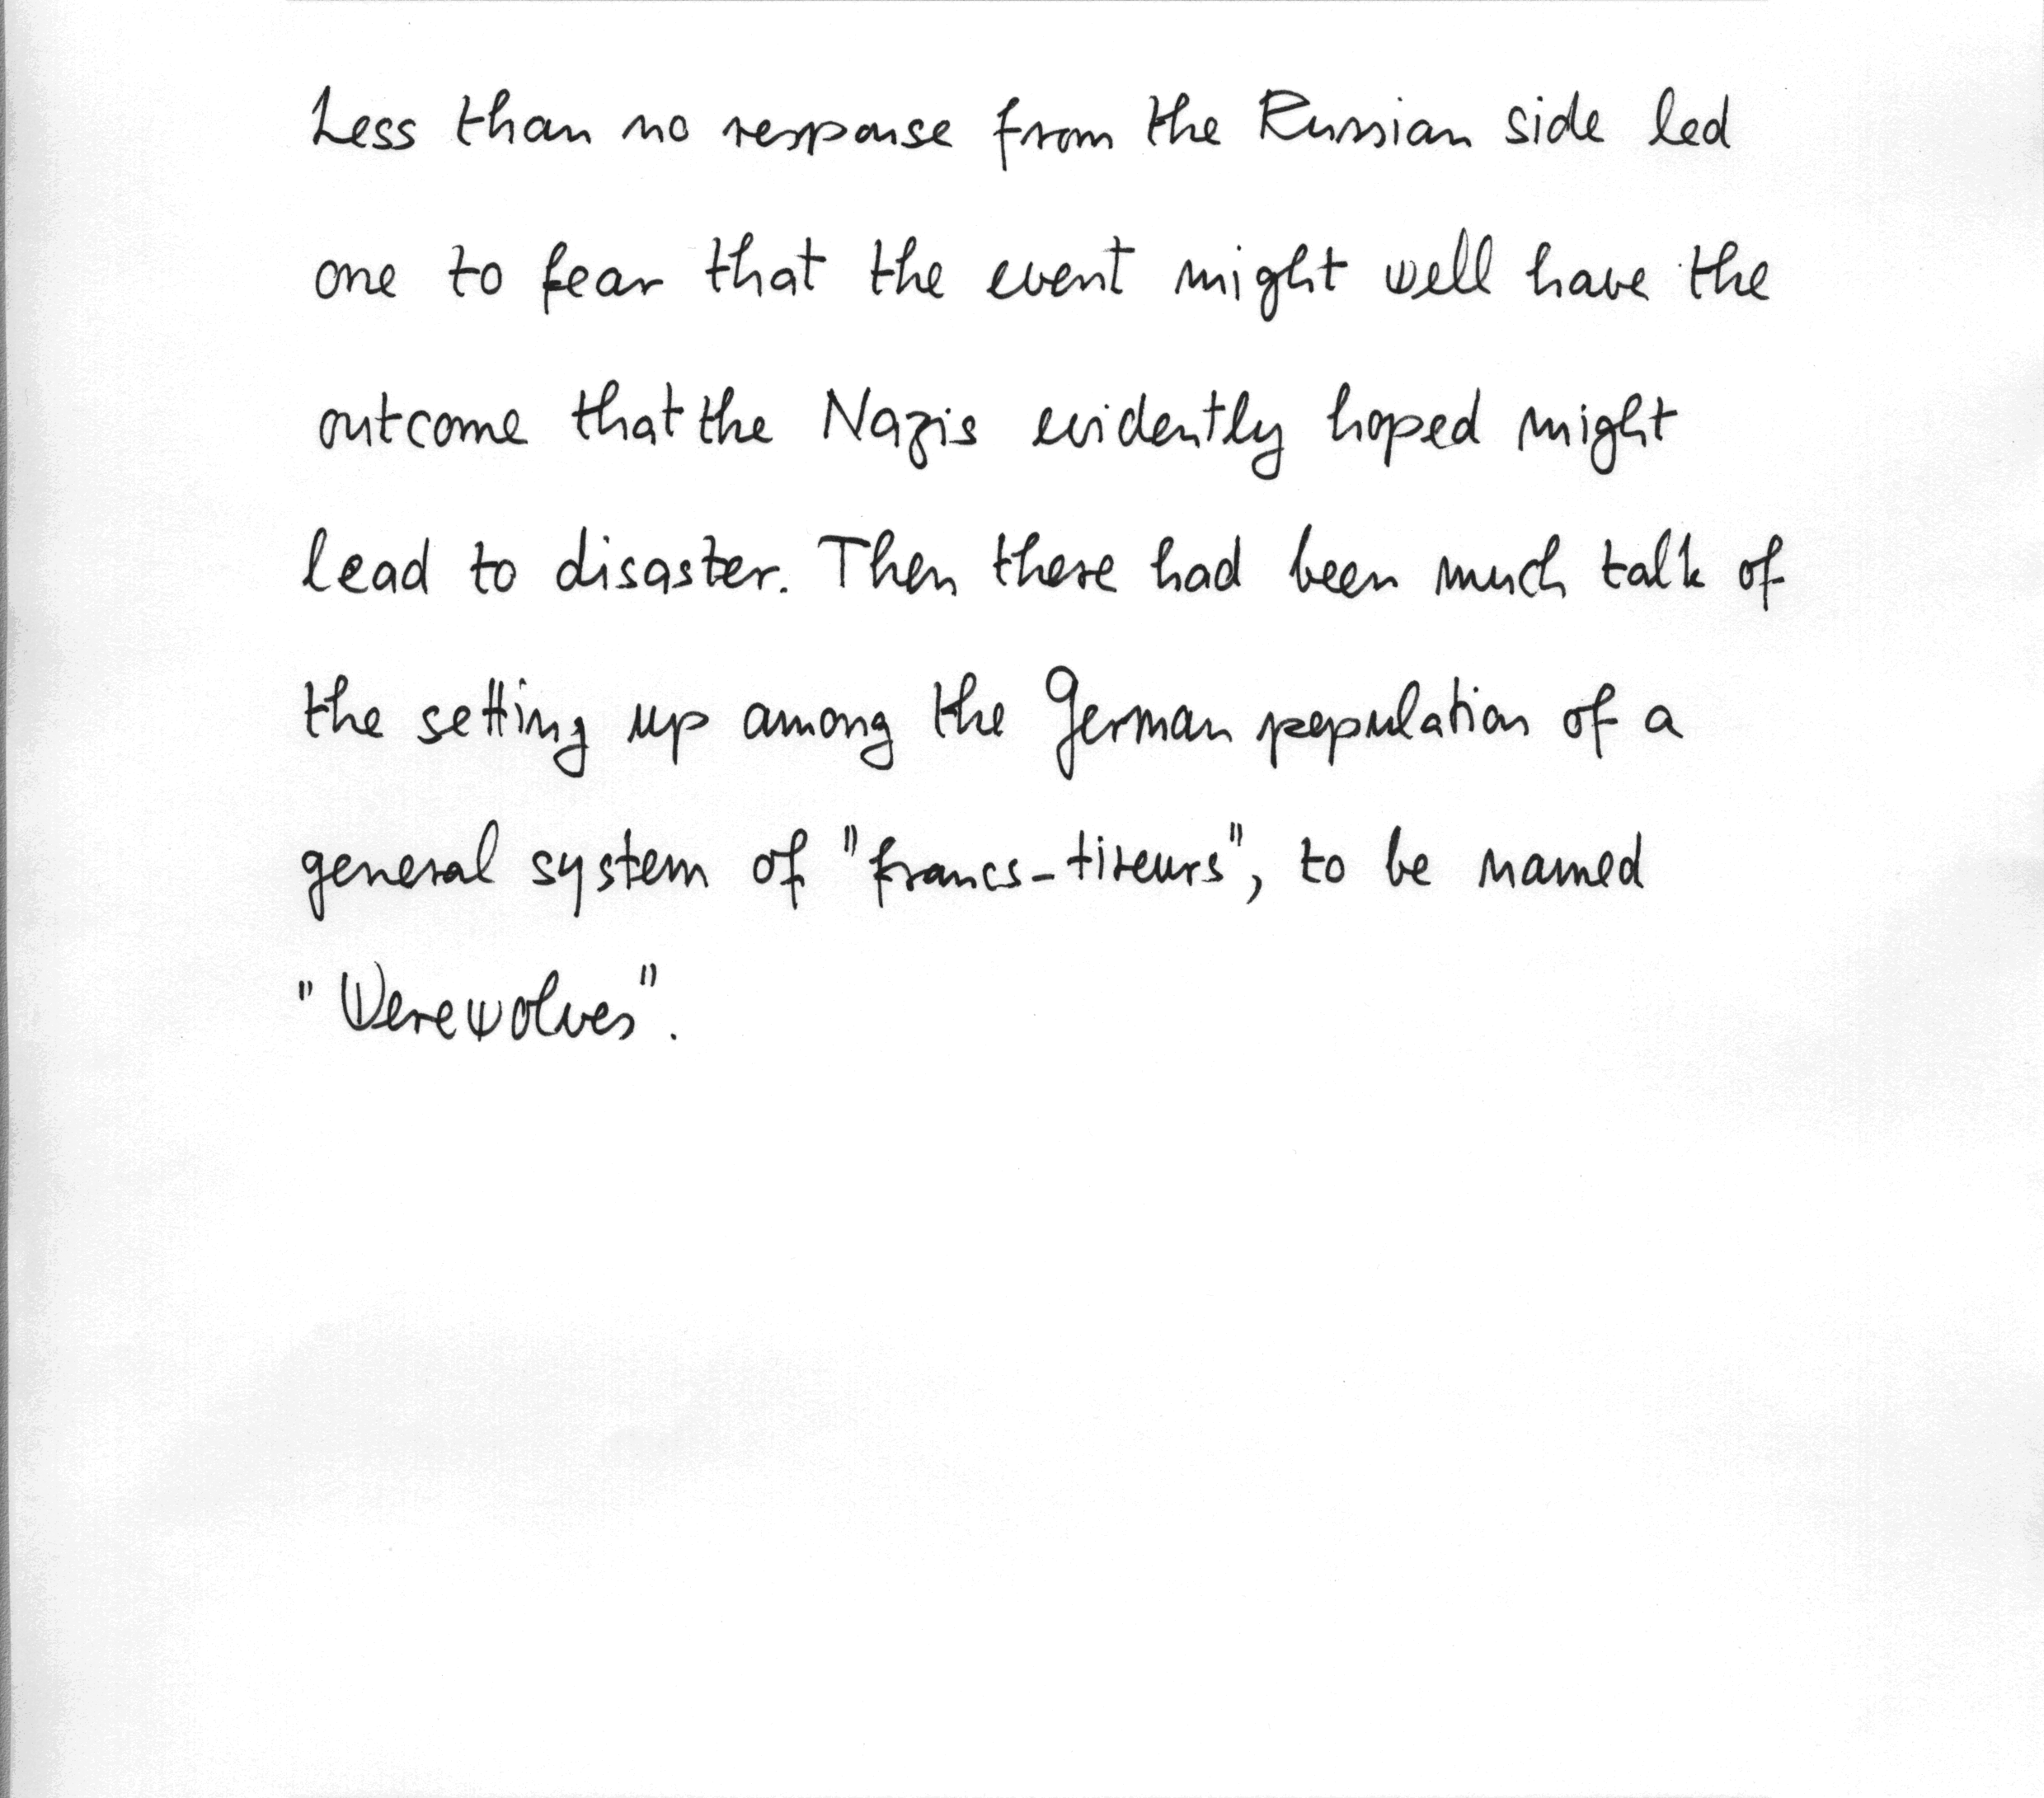 Less than no response from the Russian side led
one to fear that the event might well have the
outcome that the Nazis evidently hoped might
lead to disaster. Then there had been much talk of
the setting up among the German population of a
general system of "francs-tireurs", to be named
"Werewolves".